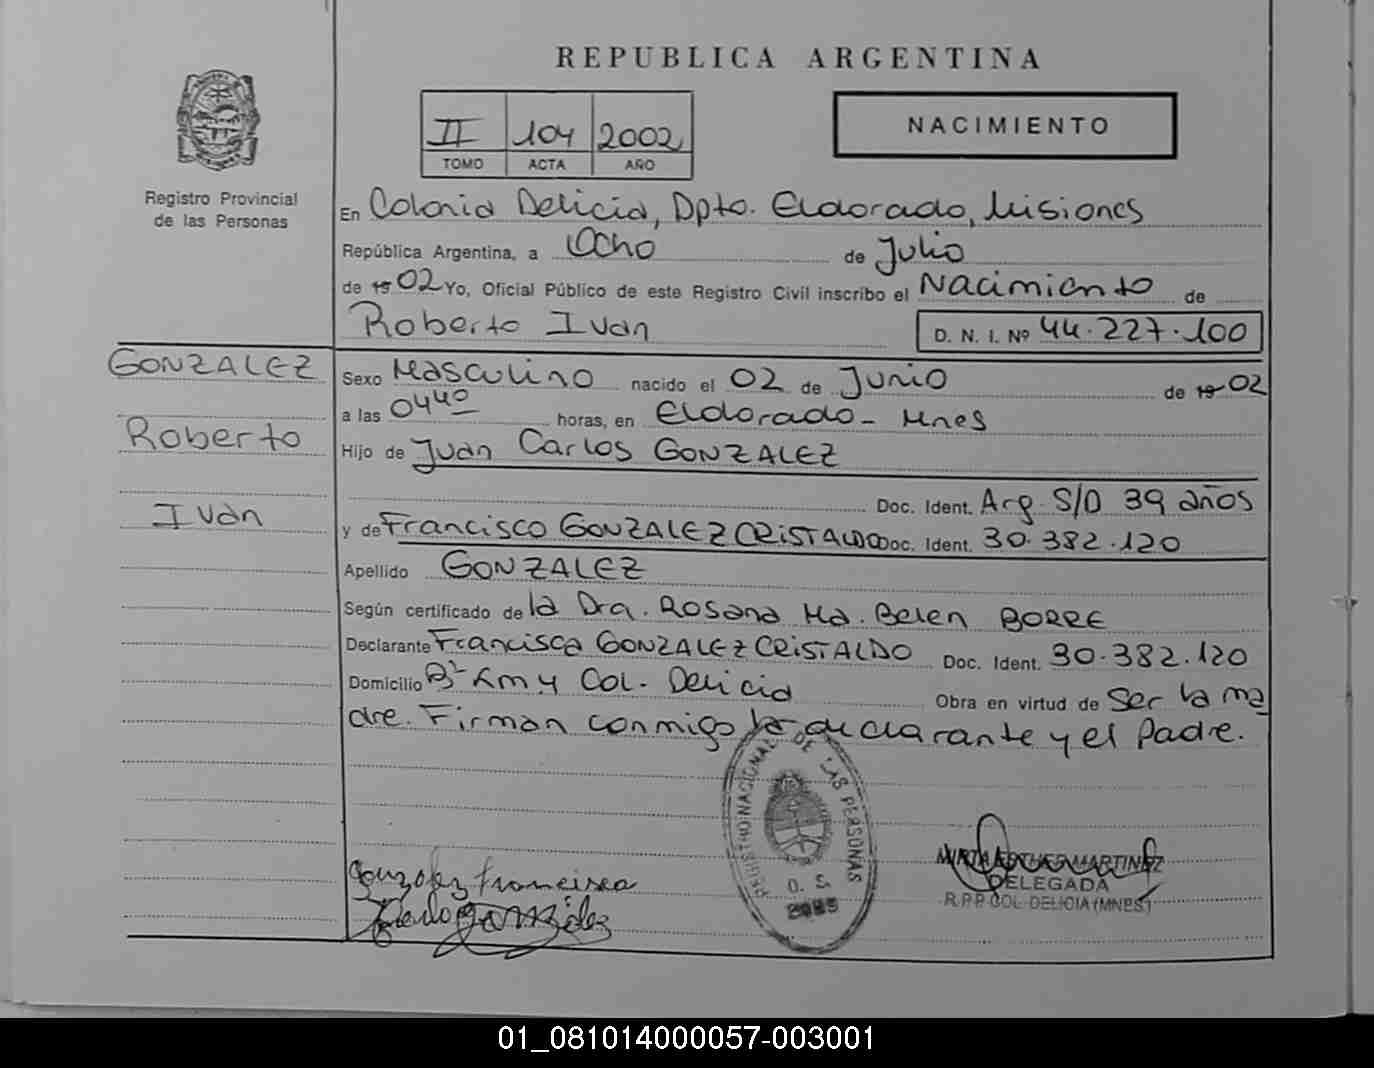 REPUBLICA ARGENTINA
II 104 2002
TOMO ACTA AÑO
NACIMIENTO
Registro Provincial
de las Personas
En Colonia Delicia, Dpto. Eldorado, Misiones
República Argentina, a Ocho de Julio
de 19 02 Yo, Oficial Público de este Registro Civil inscribo el Nacimiento de
Roberto Ivan D. N. I. Nº 44.227.100
GONZALEZ
Roberto
Ivan
Sexo Masculino nacido el 02 de Junio de 19 02
a las 0440 horas, en Eldorado - Mnes
Hijo de Juan Carlos GONZALEZ
Doc. Ident. Arg. S/D 39 años
y de Francisco GONZALEZ CRISTALDO Doc. Ident. 30.382.120
Apellido GONZALEZ
Según certificado de la Dra. Rosana Ma. Belen BORRE
Declarante Francisca GONZALEZ CRISTALDO Doc. Ident. 30.382.120
Domicilio Bº Km 4 Col. Delicia Obra en virtud de Ser la ma
dre. Firman conmigo la declarante y el Padre.
REGISTRO NACIONAL DE LAS PERSONAS
O. S.
Gonzalez Francisca
Gonzalez
MARTINEZ
DELEGADA
R.P.P COL. DELICIA (MNES)
01_081014000057-003001